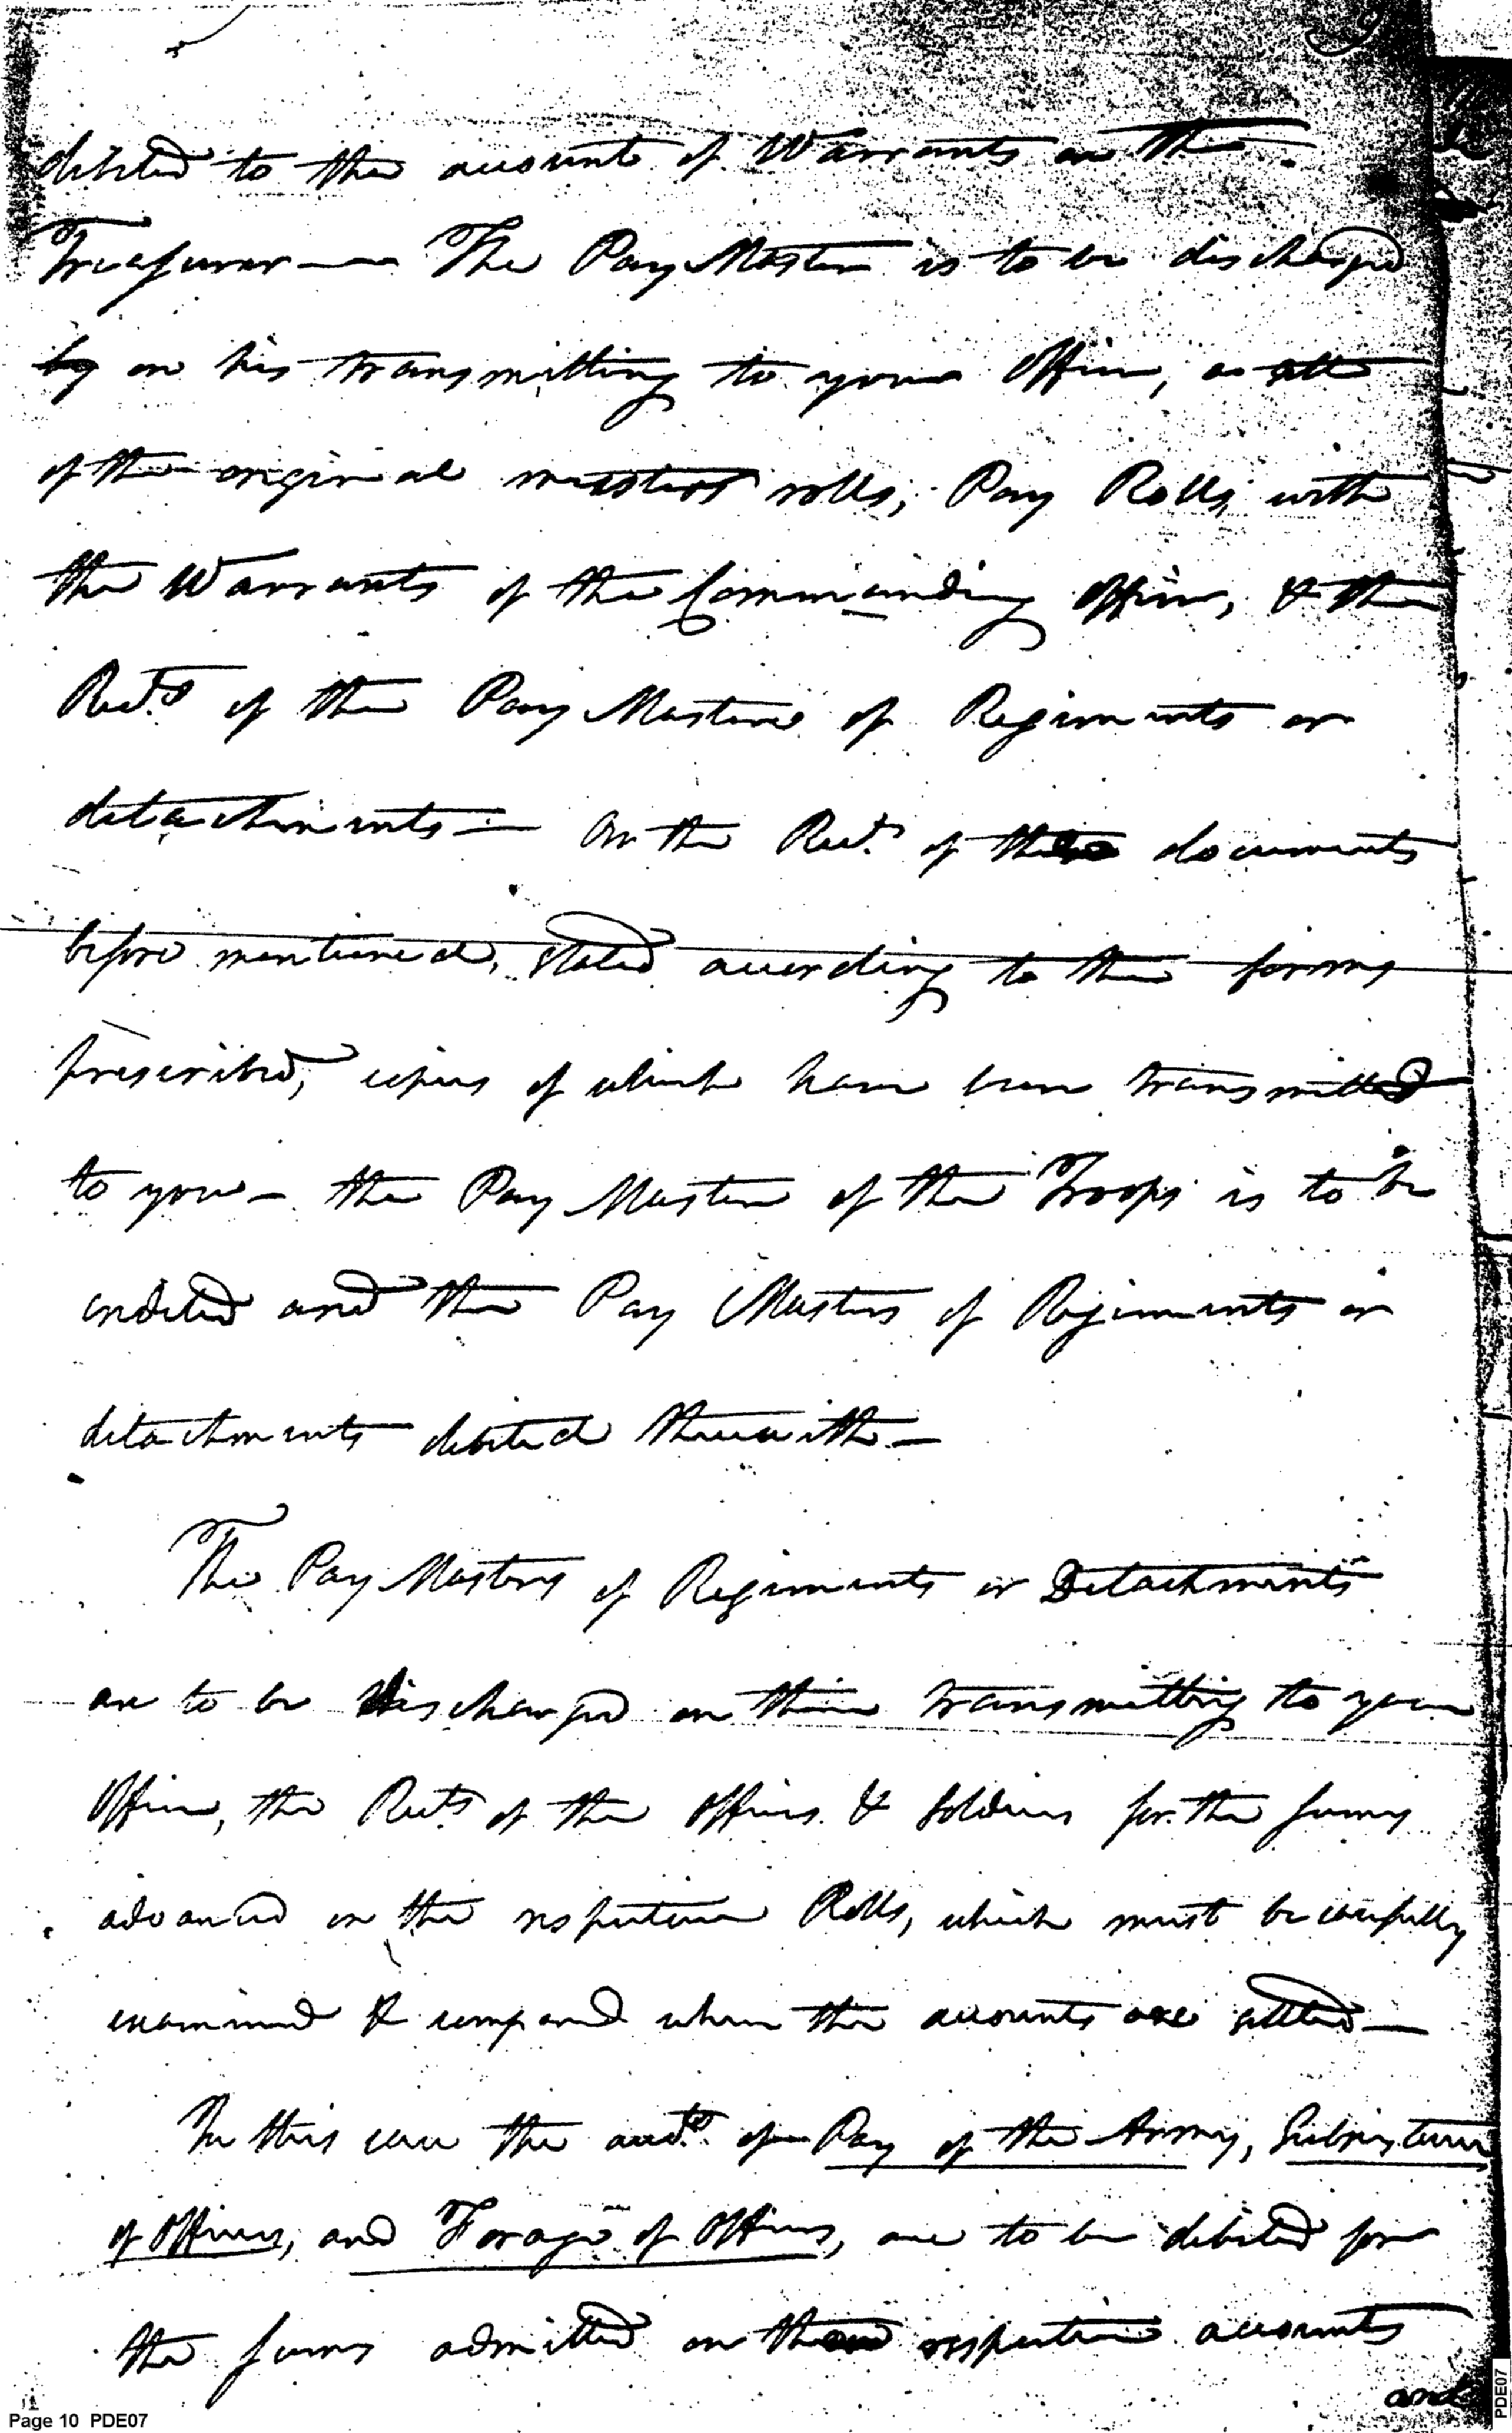 9
debited to the account of Warrants on the
Treasurer — The Pay Master is to be discharged
by on his transmitting to your Office, as all
of the original musters rolls, Pay Rolls, with
the Warrants of the Commanding Officer, & the
Rects of the Pay Masters of Regiments or
detachments — On the Rect. of these documents
before mentioned, stated according to the forms
prescribed, copies of which have been transmitted
to you — the Pay Master of the Troops is to be
credited and the Pay Masters of Regiments or
detachments debited therewith —
The Pay Masters of Regiments or Detachments
are to be discharged on their transmitting to your
Office, the Rects of the Officers & Soldiers for the sums
advanced on the respective Rolls, which must be carefully
examined & compared when the accounts are settled —
In this case the accts. of Pay of the Army, Subsistence
of Officers, and Forage of Officers, are to be debited for
the sums admitted on their respective accounts
and
Page 10 PDE07
PDE07